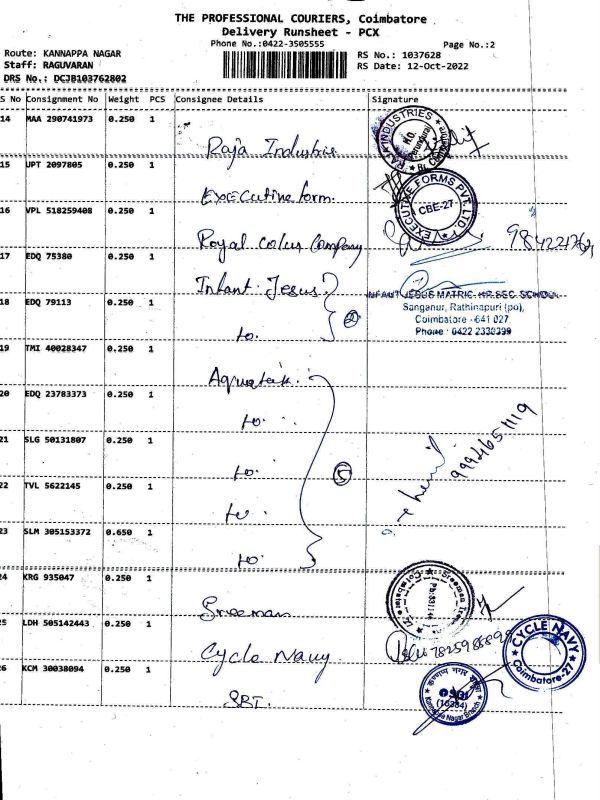 THE PROFESSIONAL COURIERS, Coimbatore
Delivery Runsheet - PCX
Phone No.:0422-3505555
Page No.:2
Route: KANNAPPA NAGAR
RS No.: 1037628
Staff: RAGUVARAN
RS Date: 12-Oct-2022
DRS No.: DCJB103762802
S No Consignment No Weight PCS Consignee Details Signature
14 MAA 290741973 0.250 1
Raja Industries
RAJA INDUSTRIES
15 JPT 2097805 0.250 1
Executive form.
EXECUTIVE FORMS PVT LTD
CBE-27
16 VPL 518259408 0.250 1
Royal Colus Company
17 EDQ 75380 0.250 1
Infant Jesus
INFANT JESUS MATRIC. HR.SEC. SCHOOL
Sanganur, Rathinapuri (po),
Coimbatore - 641 027.
Phone : 0422 2330399
18 EDQ 79113 0.250 1
to. 2
19 TMI 40028347 0.250 1
Aquatek
20 EDQ 23783373 0.250 1
to.
21 SLG 50131807 0.250 1
to. 5
9994651119
22 TVL 5622145 0.250 1
to.
23 SLM 305153372 0.650 1
to.
24 KRG 935047 0.250 1
Sreeman
25 LDH 505142443 0.250 1
Cycle Navy
CYCLE NAVY
Coimbatore-27
26 KCM 30038094 0.250 1
SBI.
SBI
(16384)
Kannappa Nagar Branch